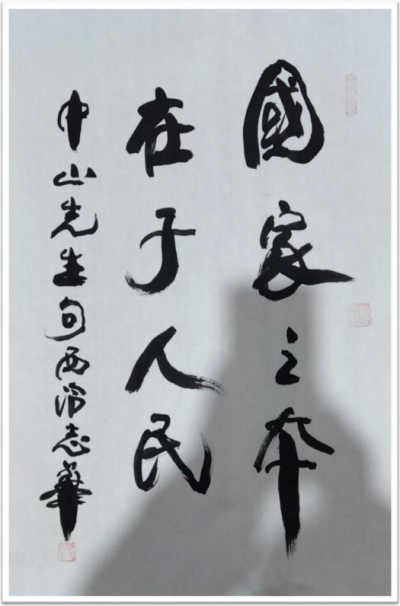 國家之本
在于人民
中山先生句西泠志華